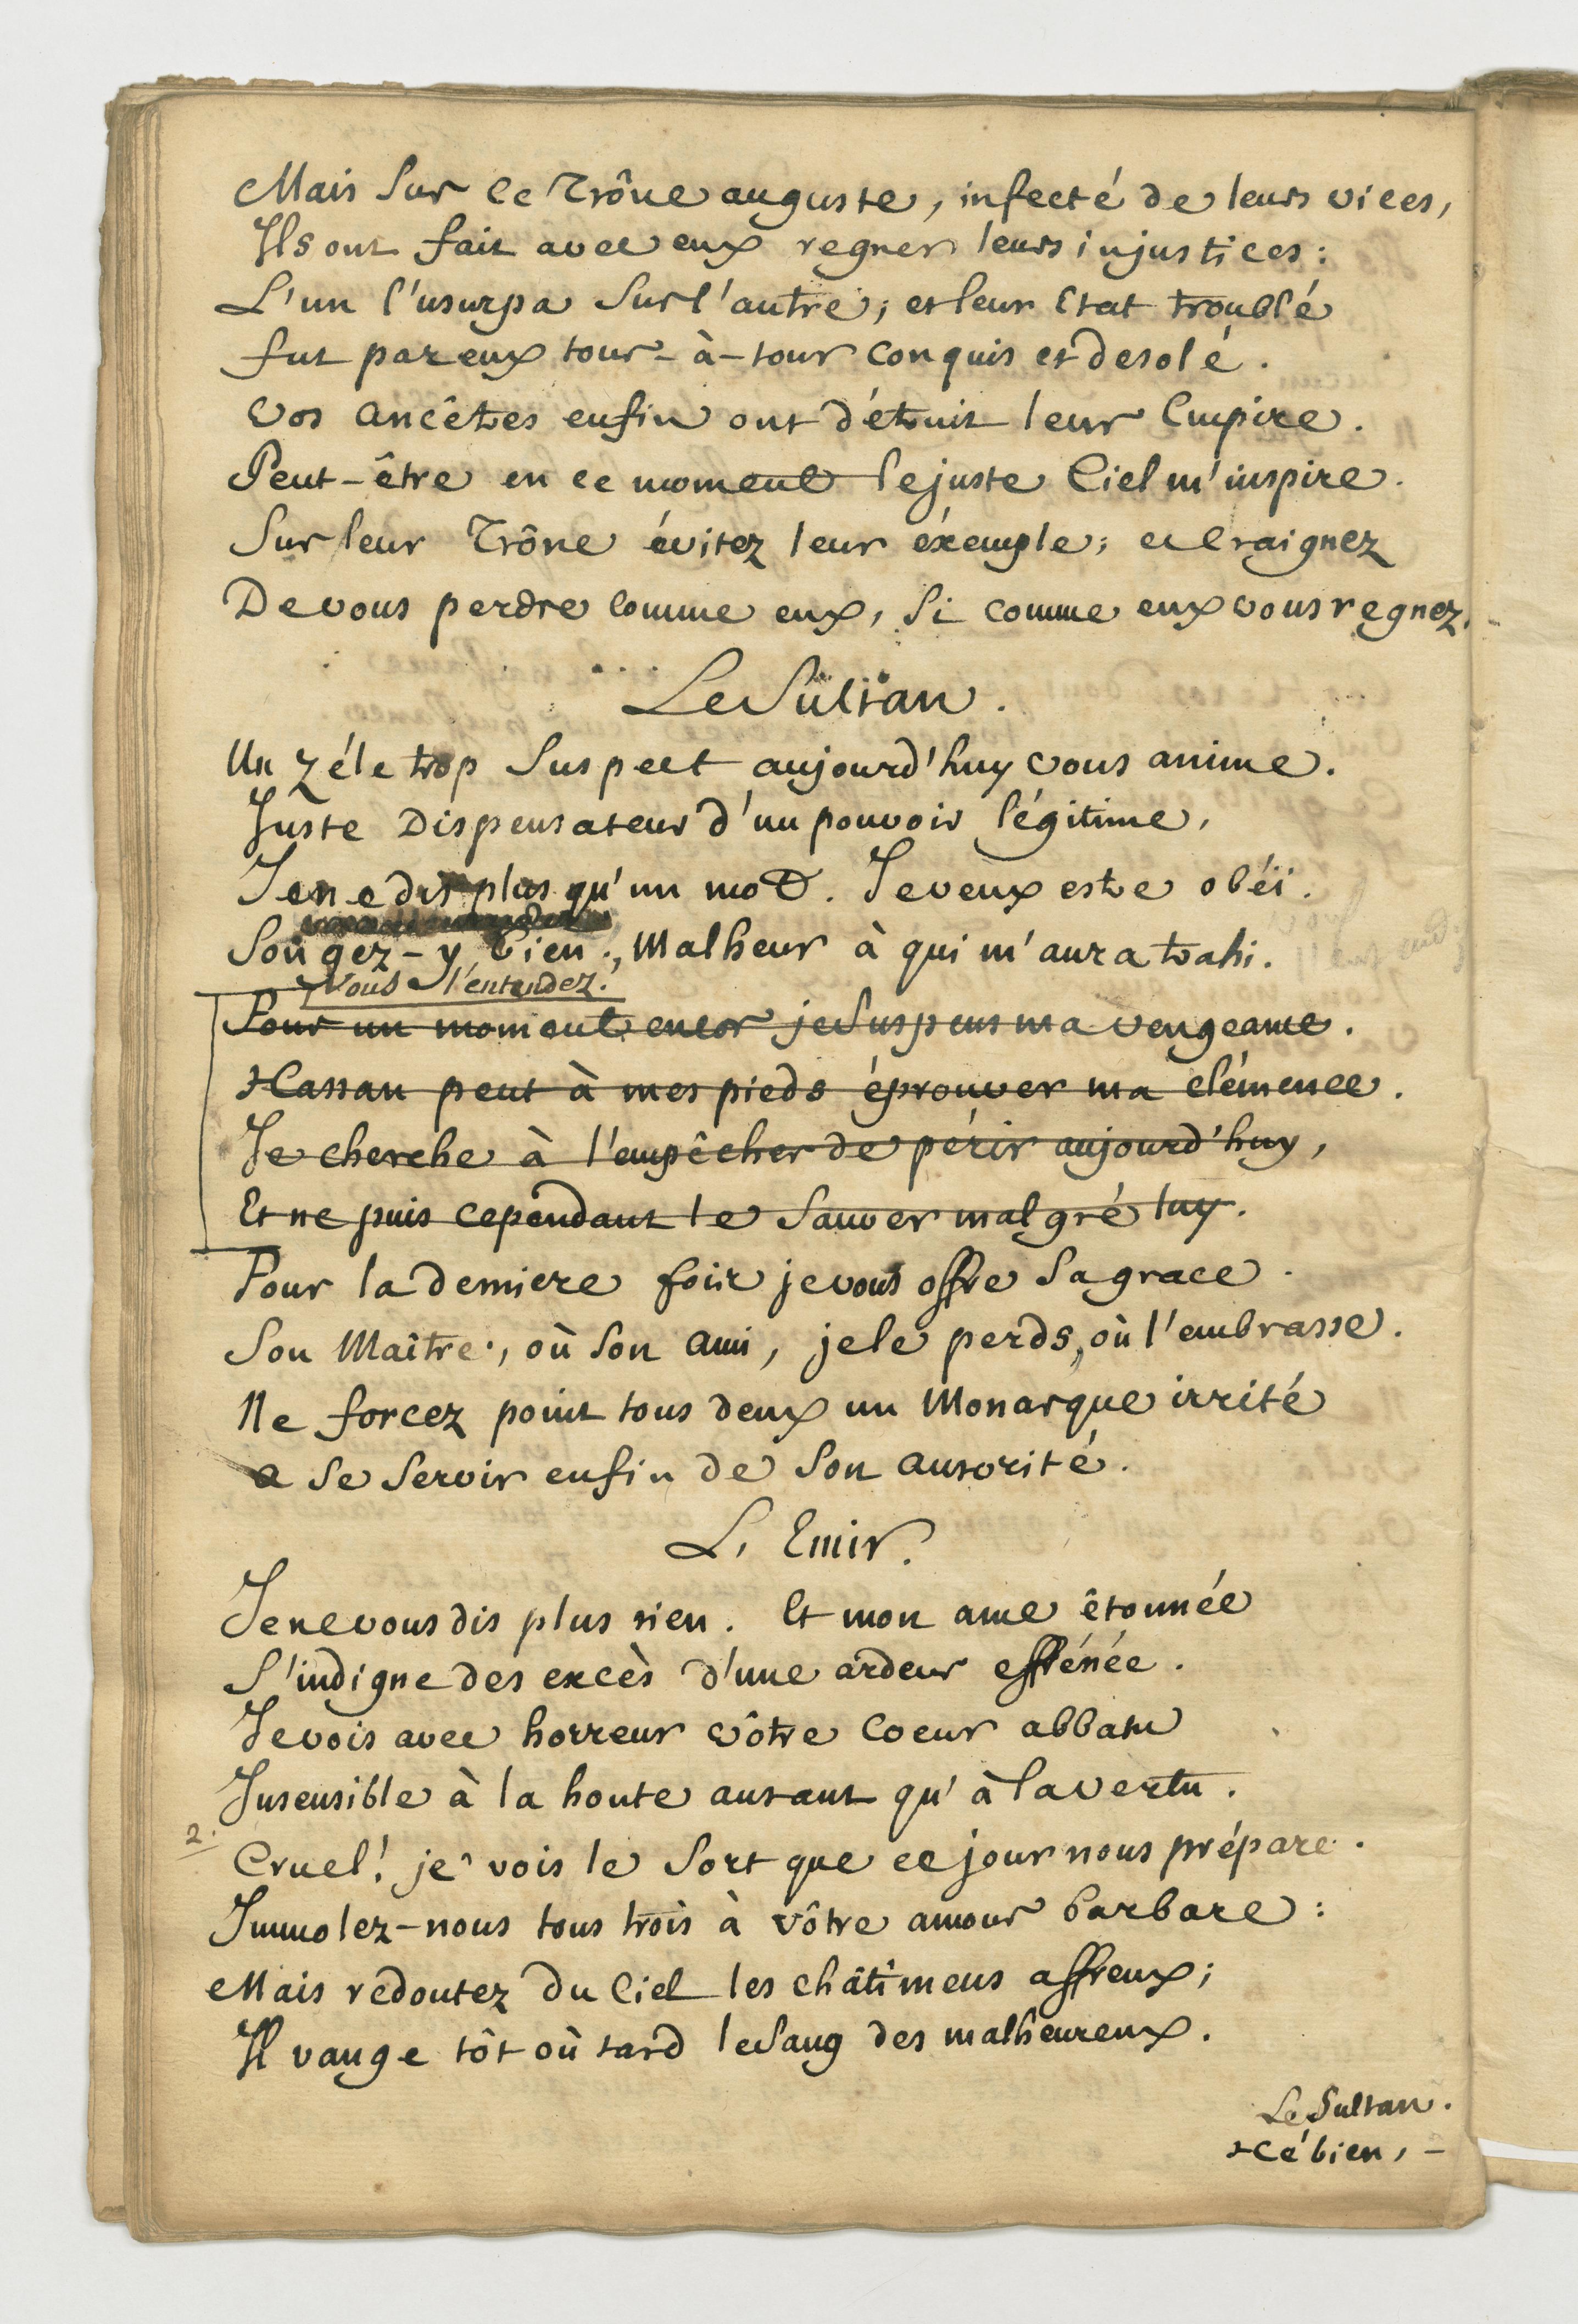 Mais sur ce Trône auguste, infecté de leurs vices,
Ils ont fait avec eux regner leurs injustices:
L'un l'usurpa sur l'autre; et leur Etat troublé
fut par eux tour-à-tour conquis et desolé.
Vos ancêtres enfin ont détruit leur Empire.
Peut-être en ce moment le juste Ciel m'inspire.
Sur leur Trône évitez leur éxemple; et craignez
De vous perdre comme eux, si comme eux vous regnez.
Le Sultan.
Un zéle trop suspect aujourd'huy vous anime.
Juste Dispensateur d'un pouvoir légitime,
Je ne dis plus qu'un mot. Je veux estre obéï.
Songez-y bien; Malheur à qui m'aura trahi.
Vous l'entendez.
Pour un moment encor je suspens ma vengeance.
Hassan peut à mes pieds éprouver ma clémence.
Je cherche à l'empêcher de périr aujourd'huy,
Et ne puis cependant le sauver malgré luy.
Pour la derniere fois je vous offre sa grace.
Son Maître, où son ami, je le perds, où l'embrasse.
Ne forcez point tous deux un Monarque irrité
a se servir enfin de son autorité.
L'Emir.
Je ne vous dis plus rien. Et mon ame êtonnée
S'indigne des excès d'une ardeur effrénée.
Je vois avec horreur vôtre coeur abbatu
Insensible à la honte autant qu'à la vertu.
2.
Cruel! je vois le sort que ce jour nous prépare.
Immolez-nous tous trois à vôtre amour barbare:
Mais redoutez du Ciel les châtimens affreux;
Il vange tôt où tard le sang des malheureux.
Le Sultan.
Hé bien, -